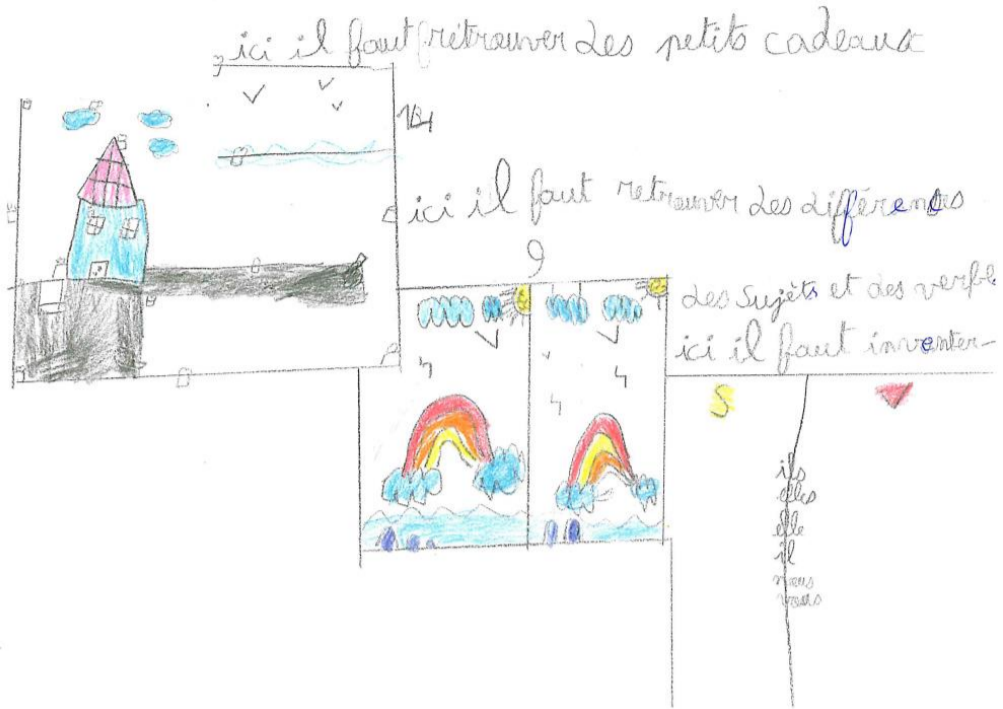 ici il faut rétrouver des petits cadeaux
14
ici il faut retrouver des différences
9
des sujèts et des verbe
ici il faut inventer
S
ils
elles
elle
il
nous
vous